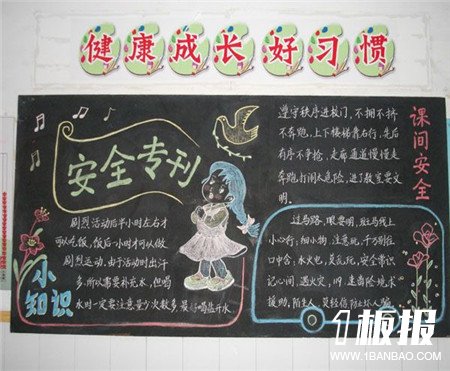 健康成长好习惯
安全专刊
剧烈活动后半小时左右才
可以吃饭,饭后一小时才可以做
剧烈运动,由于活动时出汗
多,所以需要补充水,但喝
水时一定要注意量少次数多,最好喝盐开水
小知识
遵守秩序进校门,不拥不挤
不奔跑,上下楼梯靠右行,先后
有序不争抢,走廊通道慢慢走
奔跑打闹太危险,进了教室要文
明。
课间安全
过马路,眼要明,斑马线上
小心行,细小物,注意玩,千万别往
口中含,水火电,莫乱玩,安全常识
记心间,遇火灾,119,走高险地求
援助,陌生人,莫轻信,防止坏人骗
1板报
WWW.1BANBAO.COM